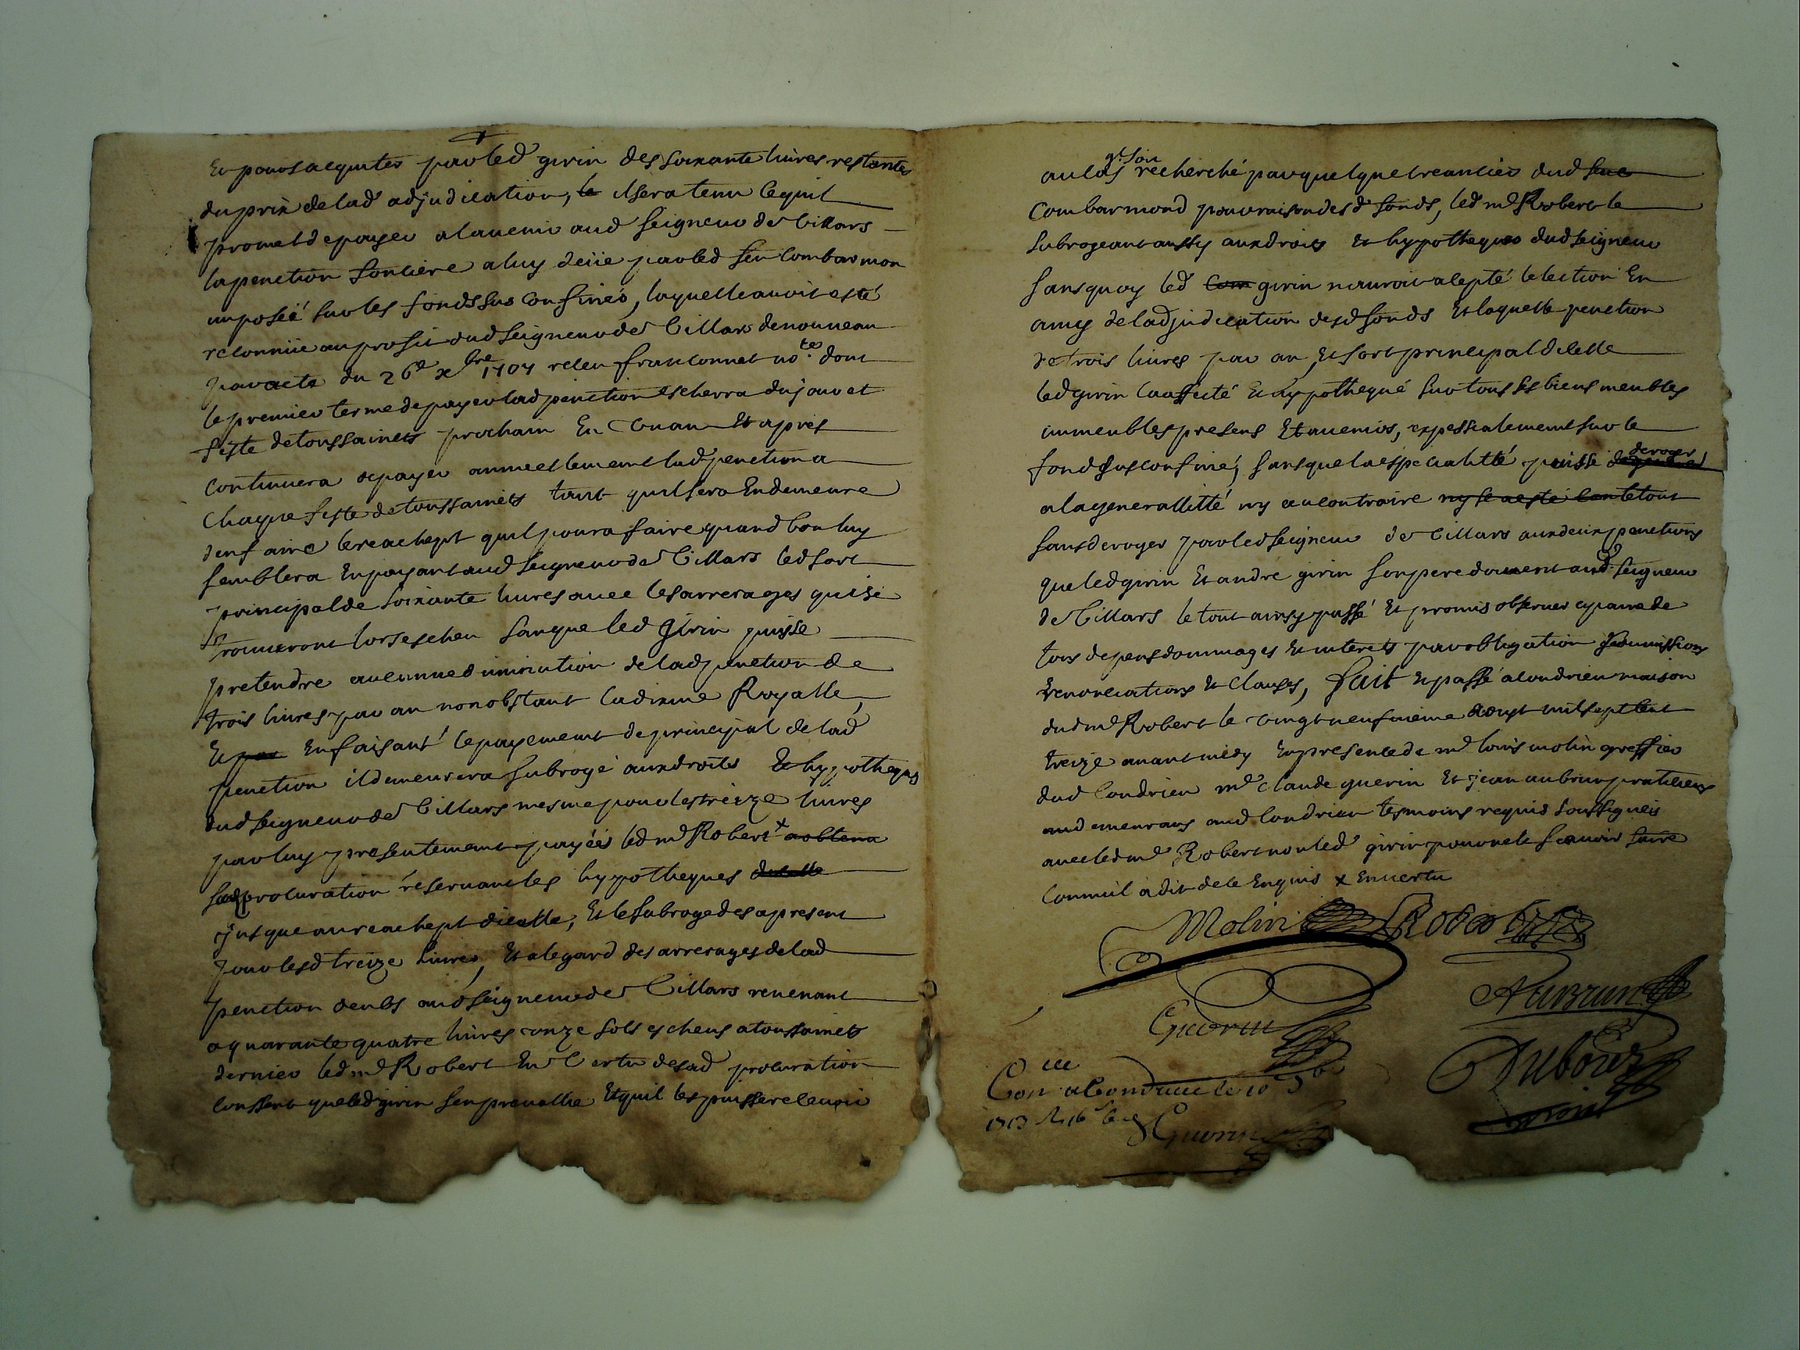 Et pour saquiter par led girin des soixante livres restantes
du prix de lad adjudication, le il sera tenu ce quil
promet de payer a lavenir aud seigneur de Villars
la penction fonciere a luy deüe par led feu Combarmon
imposéé sur les fonds sus confinés, laquelle avoit esté
reconnüe au profit dud seigneur de Villars de nouveau
par acte du 26e xbre 1707 receu franconnet note dont
le premier terme de payer lad penction escherra du jour et
feste de toussaincts prochain En Un an Et apres
continuera de payer annuellement lad penction a
Chaque feste de toussaincts tant quil sera En demeure
den faire le reachept quil poura faire quand bon luy
semblera En payant aud seigneur de Villars led sort
principal de soixante livres avec les arrerages qui se
trouveront lors escheu sans que led Girin puisse
pretendre aucune diminution de lad penction de
trois livres par an nonobstant la dixme Royalle,
Et par En faisant le payement de principal de lad
penction il demeurera subrogé aux droits Et hypotheques
dud seigneur de Villars mesme pour les treize livres
par luy presentement payéés led mr Robert x
sad procuration reservant les hypotheques dicelle
jusque au reachept dicelle, Et le subroge des a present
pour lesd treize livres, Et a legard des arrerages de lad
penction deubs aud seigneur de Villars revenant
a quarante quatre livres onze sols escheus a toussaincts
dernier led mr Robert En Vertu de sad procuration
consent que led girin sen prevallie Et quil les puisse relever
au cas qt soit recherché par quelque creancier dud feu
Combarmond pour raison desd fonds, led mr Robert le
subrogeant aussy aux droits Et hypotheques dud seigneur
sans quoy led Com girin nauroit alepté lelection En
amy de ladjudication desd fonds Et laquelle penction
de trois livres par an, Et sort principal dicelle
led girin la affecté Et hypothequé sur tous ses biens meubles
immeubles presens Et avenirs, expessialement sur le
fond sus confiné, sans que la espetialitté puisse deroger
a la generallitté ny au contraire le tout
sans deroger par led seigneur de Villars aux deux penctions
que led girin Et andre girin son pere doivent aud seigneur
de Villars le tout ainsy passé Et promis observer a paine de
tous depens dommages Et interets par obligation soumissions
renonciations Et Clauses, fait Et passé a Condrieu maison
dud mr Robert le vingt neufvieme aoust mil sept cent
treize avant midy En presence de mr louis molin greffier
dud Condrieu mr Claude guerin Et jean aubrun praticiens
aud Condrieu tesmoins requis soussignés
avec led mr Robert non led girin pour ne le scavoir faire
comme il a dit de ce Enquis x En vertu
Molin Robert
Aubrun
Guerin
Dubour
Conlle a Condrieu le 10 7bre
1713
Guerin